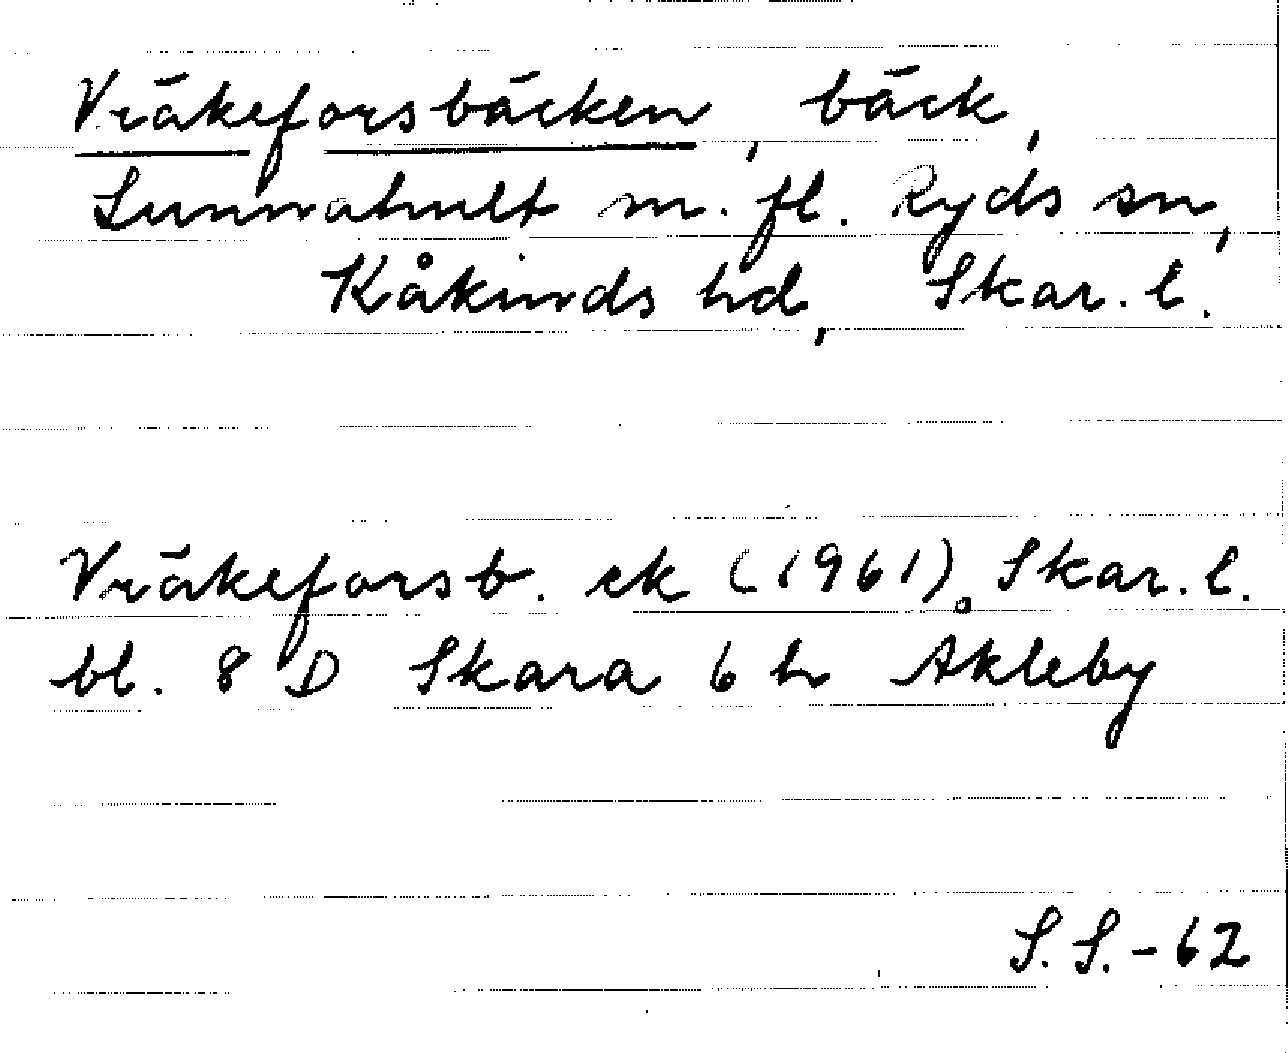 Vräkeforsbäcken, bäck,
Sunnahult m. fl. Ryds sn,
Kåkinds hd, Skar. l.
Vräkeforsb. ek (1961). Skar. l.
bl. 8 D Skara 6 h Åkleby
S. S. - 62